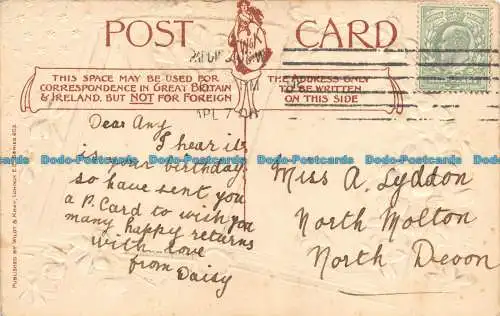 POST CARD
W&K
THIS SPACE MAY BE USED FOR
CORRESPONDENCE IN GREAT BRITAIN
& IRELAND, BUT NOT FOR FOREIGN
THE ADDRESS ONLY
TO BE WRITTEN
ON THIS SIDE
Dear Amy
I hear it
is your birthday
so have sent you
a P. Card to wish you
many happy returns
with love
from Daisy
Miss A. Lyddon
North Molton
North Devon
PUBLISHED BY WILDT & KRAY, LONDON, E.C.
Dodo-Postcards.com